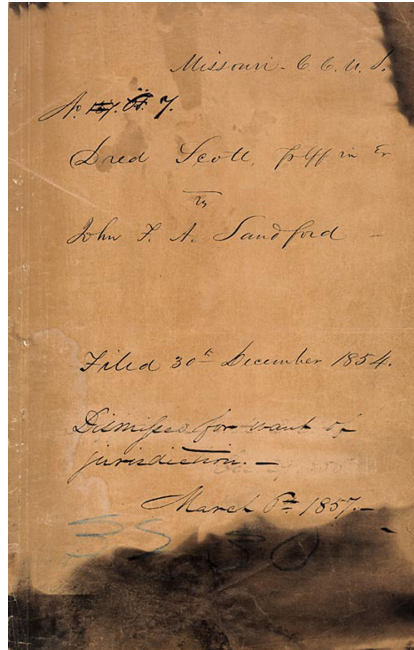 Missouri - C. C. U. S.
No. 7.
Dred Scott, Plff in Er
vs
John F. A. Sandford -
Filed 30th December 1854.
Dismissed for want of
jurisdiction. -
March 6th 1857. -
3230